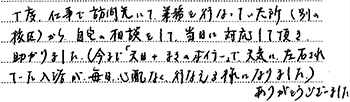 丁度、仕事で訪問先にて業務を行なっていた所(別の
校区)から自宅の相談をして、当日に対応して頂き
助かりました。(今まで天日+まきのボイラーで天気に左右され
ていた入浴が毎日心配なく行なえる様になりました)
ありがとうございました